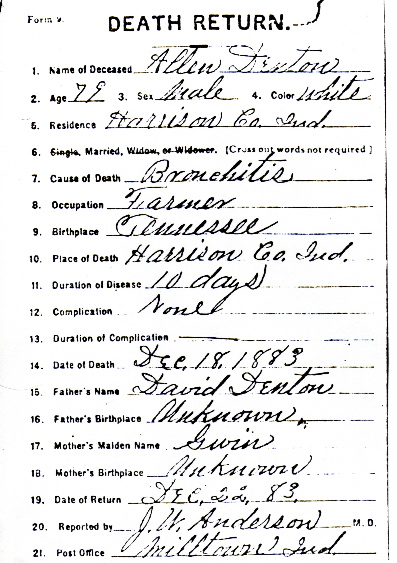 Form 9.
DEATH RETURN.
1. Name of Deceased Allen Denton
2. Age 79 3. Sex Male 4. Color White
5. Residence Harrison Co. Ind.
6. Single, Married, Widow, or Widower. (Cross out words not required)
7. Cause of Death Bronchitis
8. Occupation Farmer
9. Birthplace Tennessee
10. Place of Death Harrison Co. Ind.
11. Duration of Disease 10 days
12. Complication None
13. Duration of Complication
14. Date of Death Dec. 18, 1883
15. Father's Name David Denton
16. Father's Birthplace Unknown.
17. Mother's Maiden Name Gwin
18. Mother's Birthplace Unknown
19. Date of Return Dec. 22, 83.
20. Reported by J. W. Anderson M. D.
21. Post Office Milltown Ind